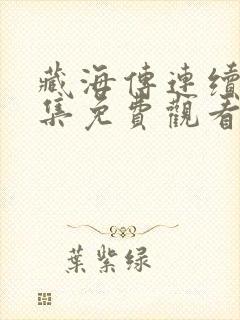 藏海傳連續
集免費觀看
葉紫绿